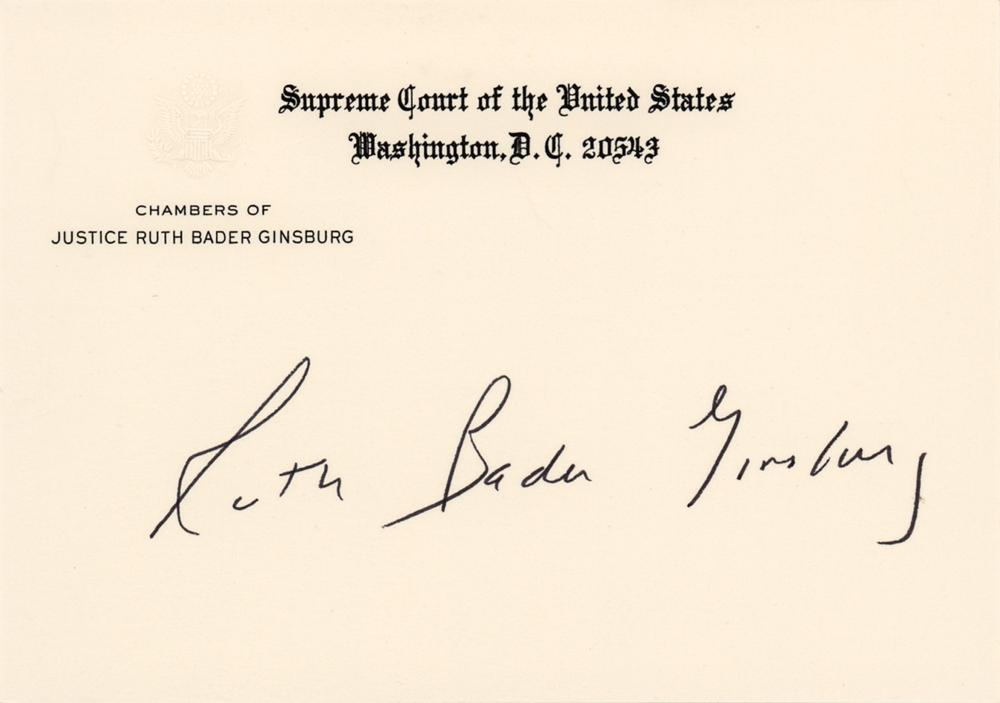 Supreme Court of the United States
Washington, D. C. 20543
CHAMBERS OF
JUSTICE RUTH BADER GINSBURG
Ruth Bader Ginsburg